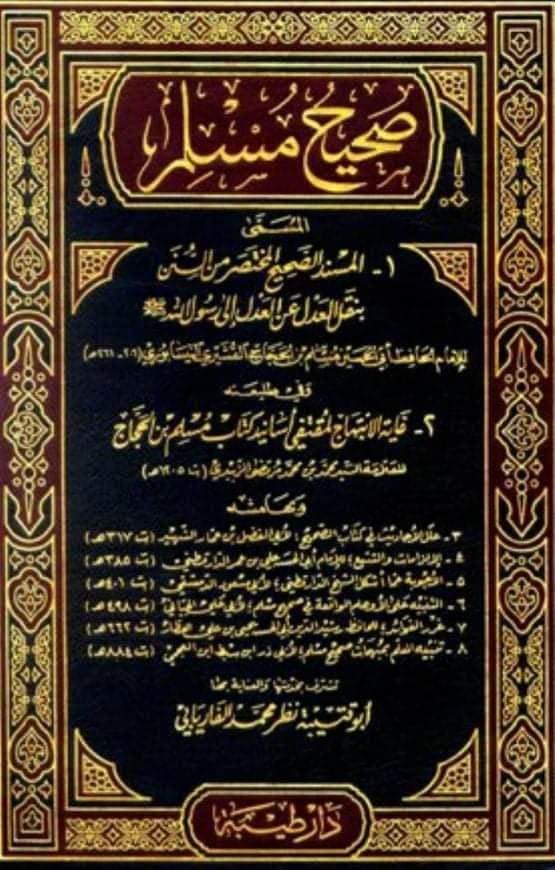 صَحِيحُ مُسْلِم
المُسَمَّى
١- المسند الصحيح المختصر من السنن
بنقل العدل عن العدل إلى رسول الله ﷺ
للإمام الحافظ أبي الحسين مسلم بن الحجاج القشيري النيسابوري (٢٠٦-٢٦١هـ)
وفي طليعته
٢- غاية الابتهاج لمقتفي أسانيد كتاب مسلم بن الحجاج
للعلامة السيد محمد بن محمد مرتضى الزبيدي (ت ١٢٠٥هـ)
وبهامشه
٣- علل الأحاديث في كتاب الصحيح؛ لأبي الفضل بن عمار الشهيد (ت ٣١٧هـ)
٤- الإلزامات والتتبع؛ للإمام أبي الحسن علي بن عمر الدارقطني (ت ٣٨٥هـ)
٥- الأجوبة عما أشكل الشيخ الدارقطني؛ لأبي مسعود الدمشقي (ت ٤٠١هـ)
٦- التنبيه على الأوهام الواقعة في صحيح مسلم؛ لأبي علي الجياني (ت ٤٩٨هـ)
٧- غرر الفوائد؛ للحافظ رشيد الدين أبي الحسين يحيى بن علي العطار (ت ٦٦٢هـ)
٨- تنبيه المعلم بمبهمات صحيح مسلم؛ لأبي ذر ابن سبط ابن العجمي (ت ٨٨٤هـ)
تشرف بخدمتها والعناية بها
أبو قتيبة نظر محمد الفاريابي
دار طيبة